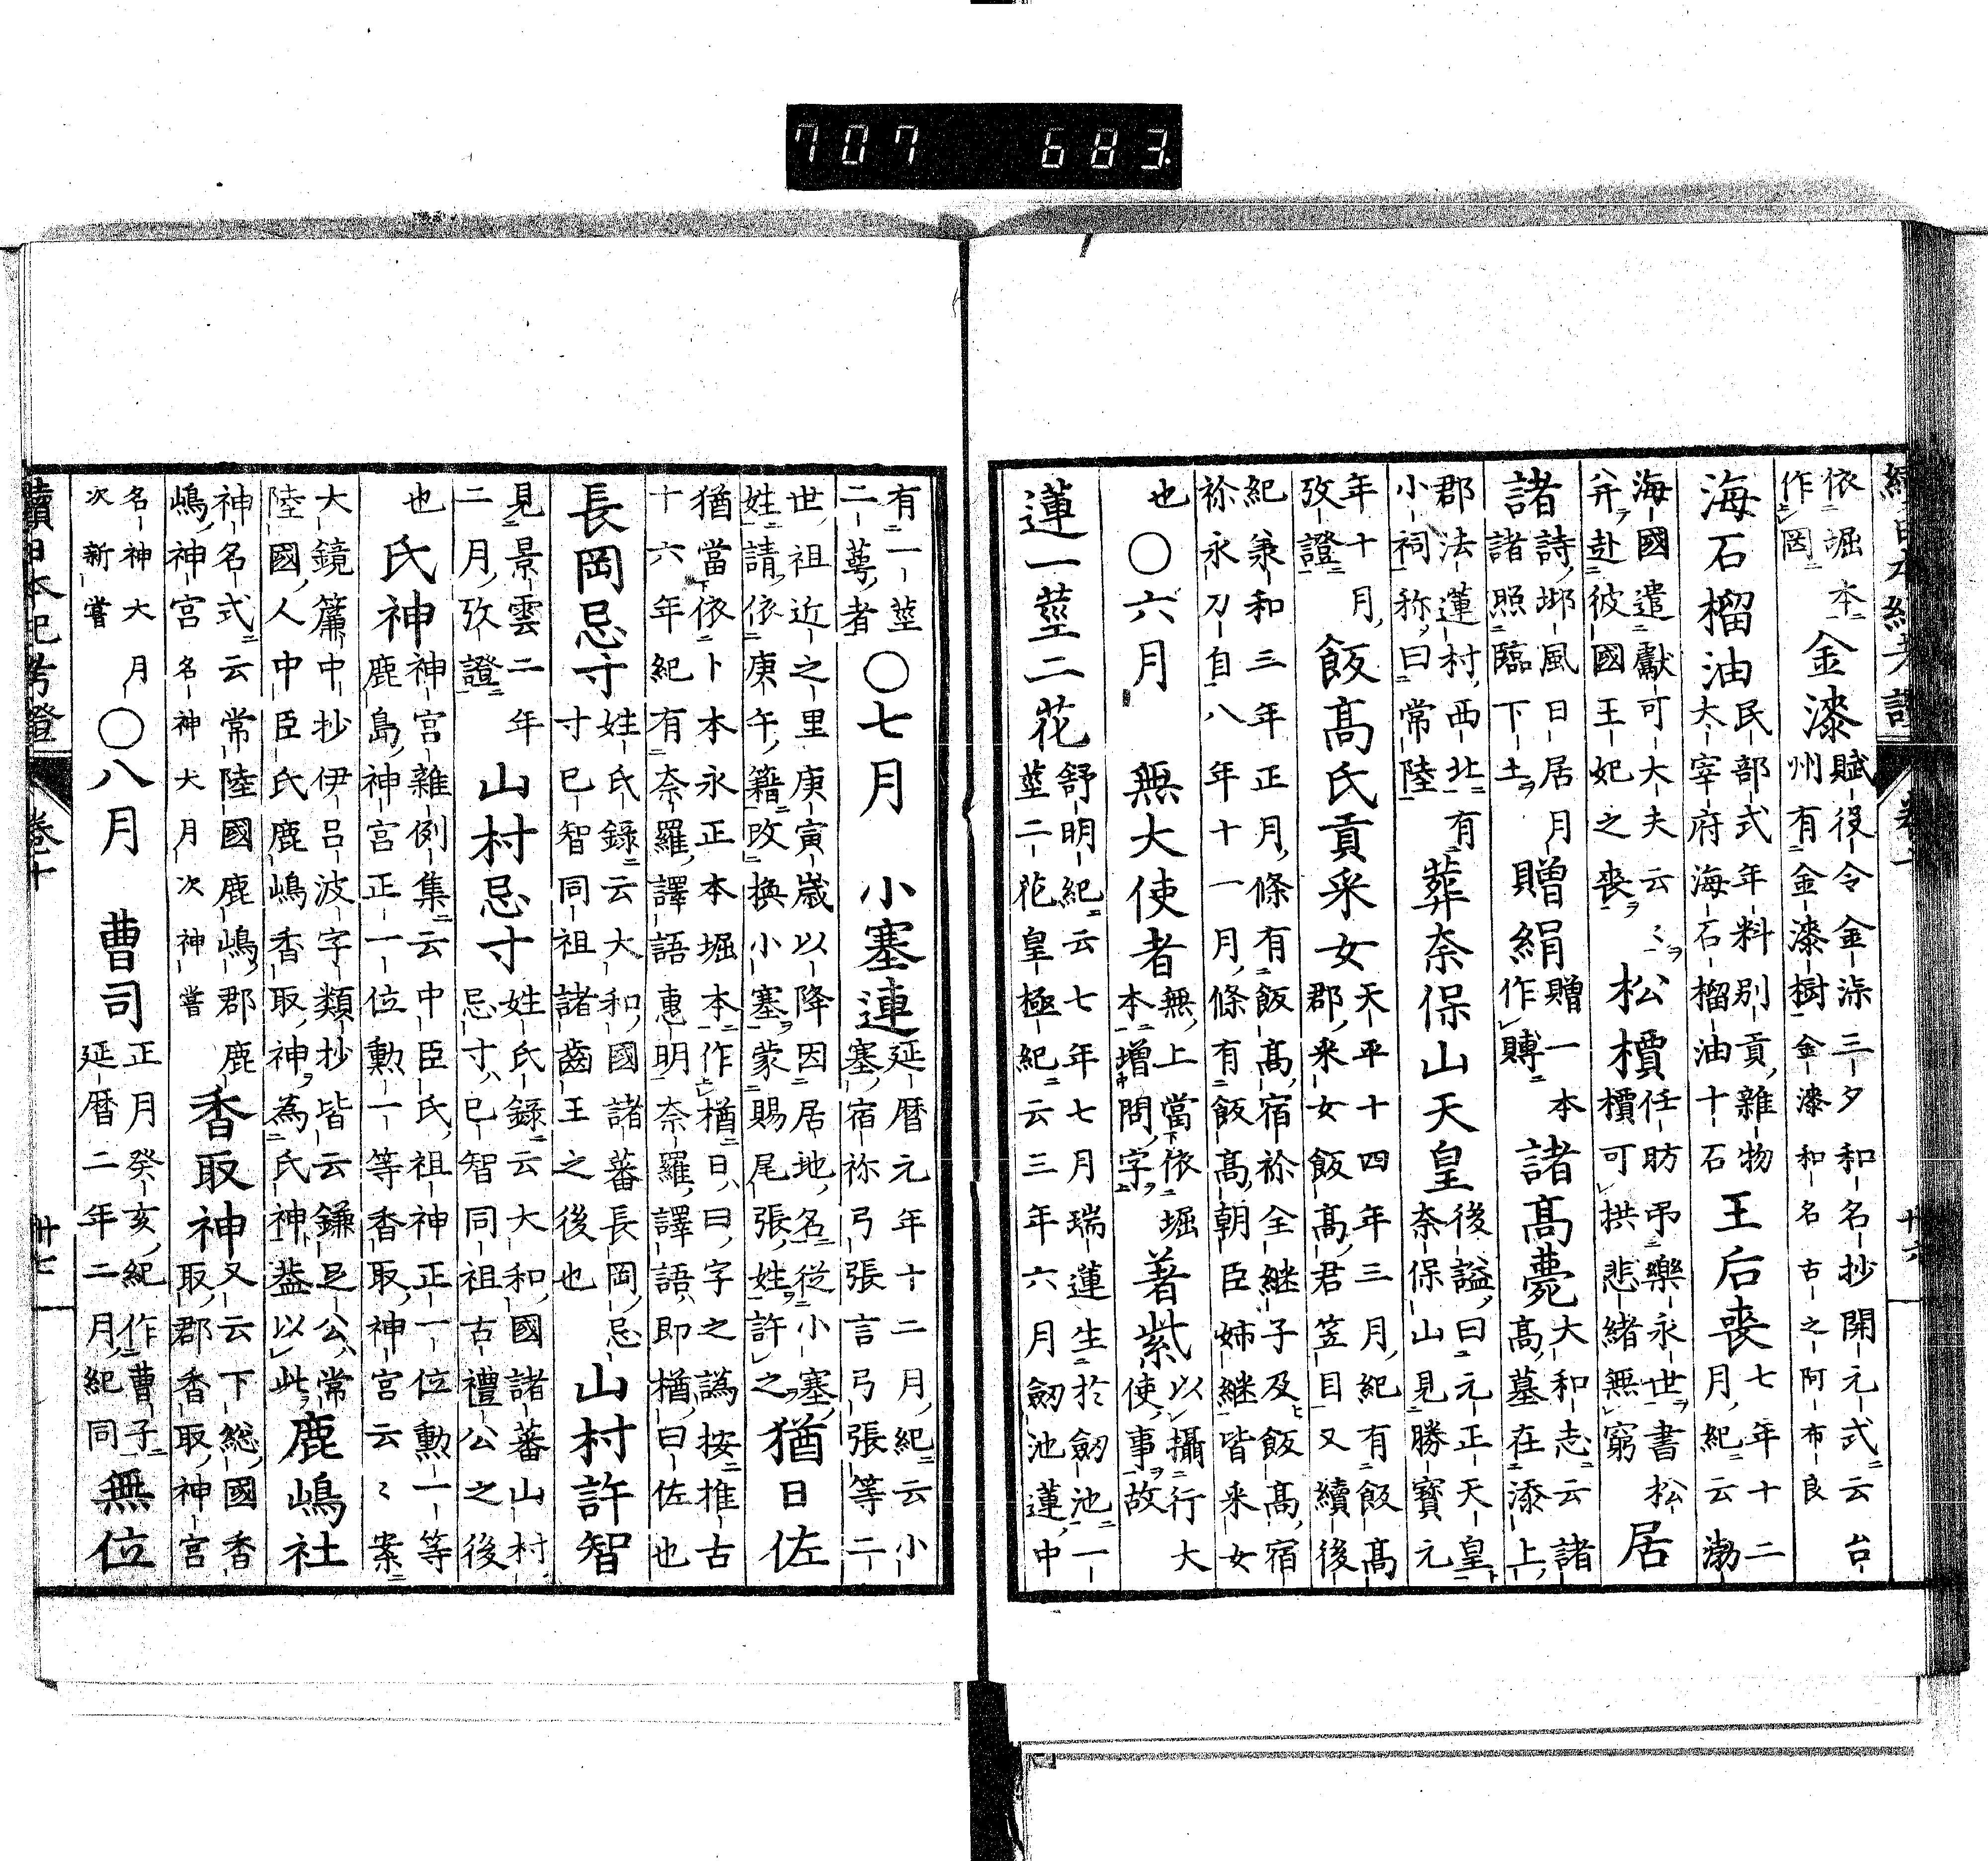 707 683
依堀本作罔 金漆 賦役令金漆三夕和名抄開元式云台州有金漆樹金漆和名古之阿布良
海石榴油 民部式年料別貢雜物太宰府海石榴油十石 王后喪 七年十二月紀云渤
海國遣獻可大夫云〻并赴彼國王妃之喪 松檟 任昉弔樂永世書松檟可拱悲緒無窮 居
諸 詩邶風日居月諸照臨下土 贈絹 贈一本作賻 諸高薨 大和志云諸高墓在添上
郡法蓮村西北有小祠称曰常陸 葬奈保山天皇 後謚曰元正天皇奈保山見勝寶元
年十月攷證 飯高氏貢采女 天平十四年三月紀有飯高郡采女飯高君笠目又續後
紀兼和三年正月條有飯高宿祢全継子及飯高宿祢永刀自八年十一月條有飯高朝臣姉継皆采女
也 〇六月 無大使者 無上當依堀本増問字 著紫 以攝行大使事故
蓮一莖二花 舒明紀云七年七月瑞蓮生於劒池一莖二花皇極紀云三年六月劒池蓮中
有一莖二蕚者 〇七月 小塞連 延暦元年十二月紀云小塞宿祢弓張言弓張等二
世祖近之里庚寅歳以降因居地名從小塞姓請依庚午籍改換小塞蒙賜尾張姓許之 猶日佐
猶當依卜本永正本堀本作楢日曰字之譌按推古十六年紀有奈羅譯語惠明奈羅譯語即楢曰佐也
長岡忌寸 姓氏録云大和國諸蕃長岡忌寸已智同祖諸齒王之後也 山村許智
見景雲二年二月攷證 山村忌寸 姓氏録云大和國諸蕃山村忌寸已智同祖古禮公之後
也 氏神 神宮雜例集云中臣氏祖神正一位勲一等鹿島神宮正一位勲一等香取神宮云〻案
大鏡簾中抄伊呂波字類抄皆云鎌足公常陸國人中臣氏鹿嶋香取神為氏神葢以此 鹿嶋社
神名式云常陸國鹿嶋郡鹿嶋神宮名神大月次神嘗 香取神 又云下総國香取郡香取神宮
名神大月次新嘗 〇八月 曹司 正月癸亥紀作曹子延暦二年二月紀同 無位
續日本紀考證 卷十 卅七